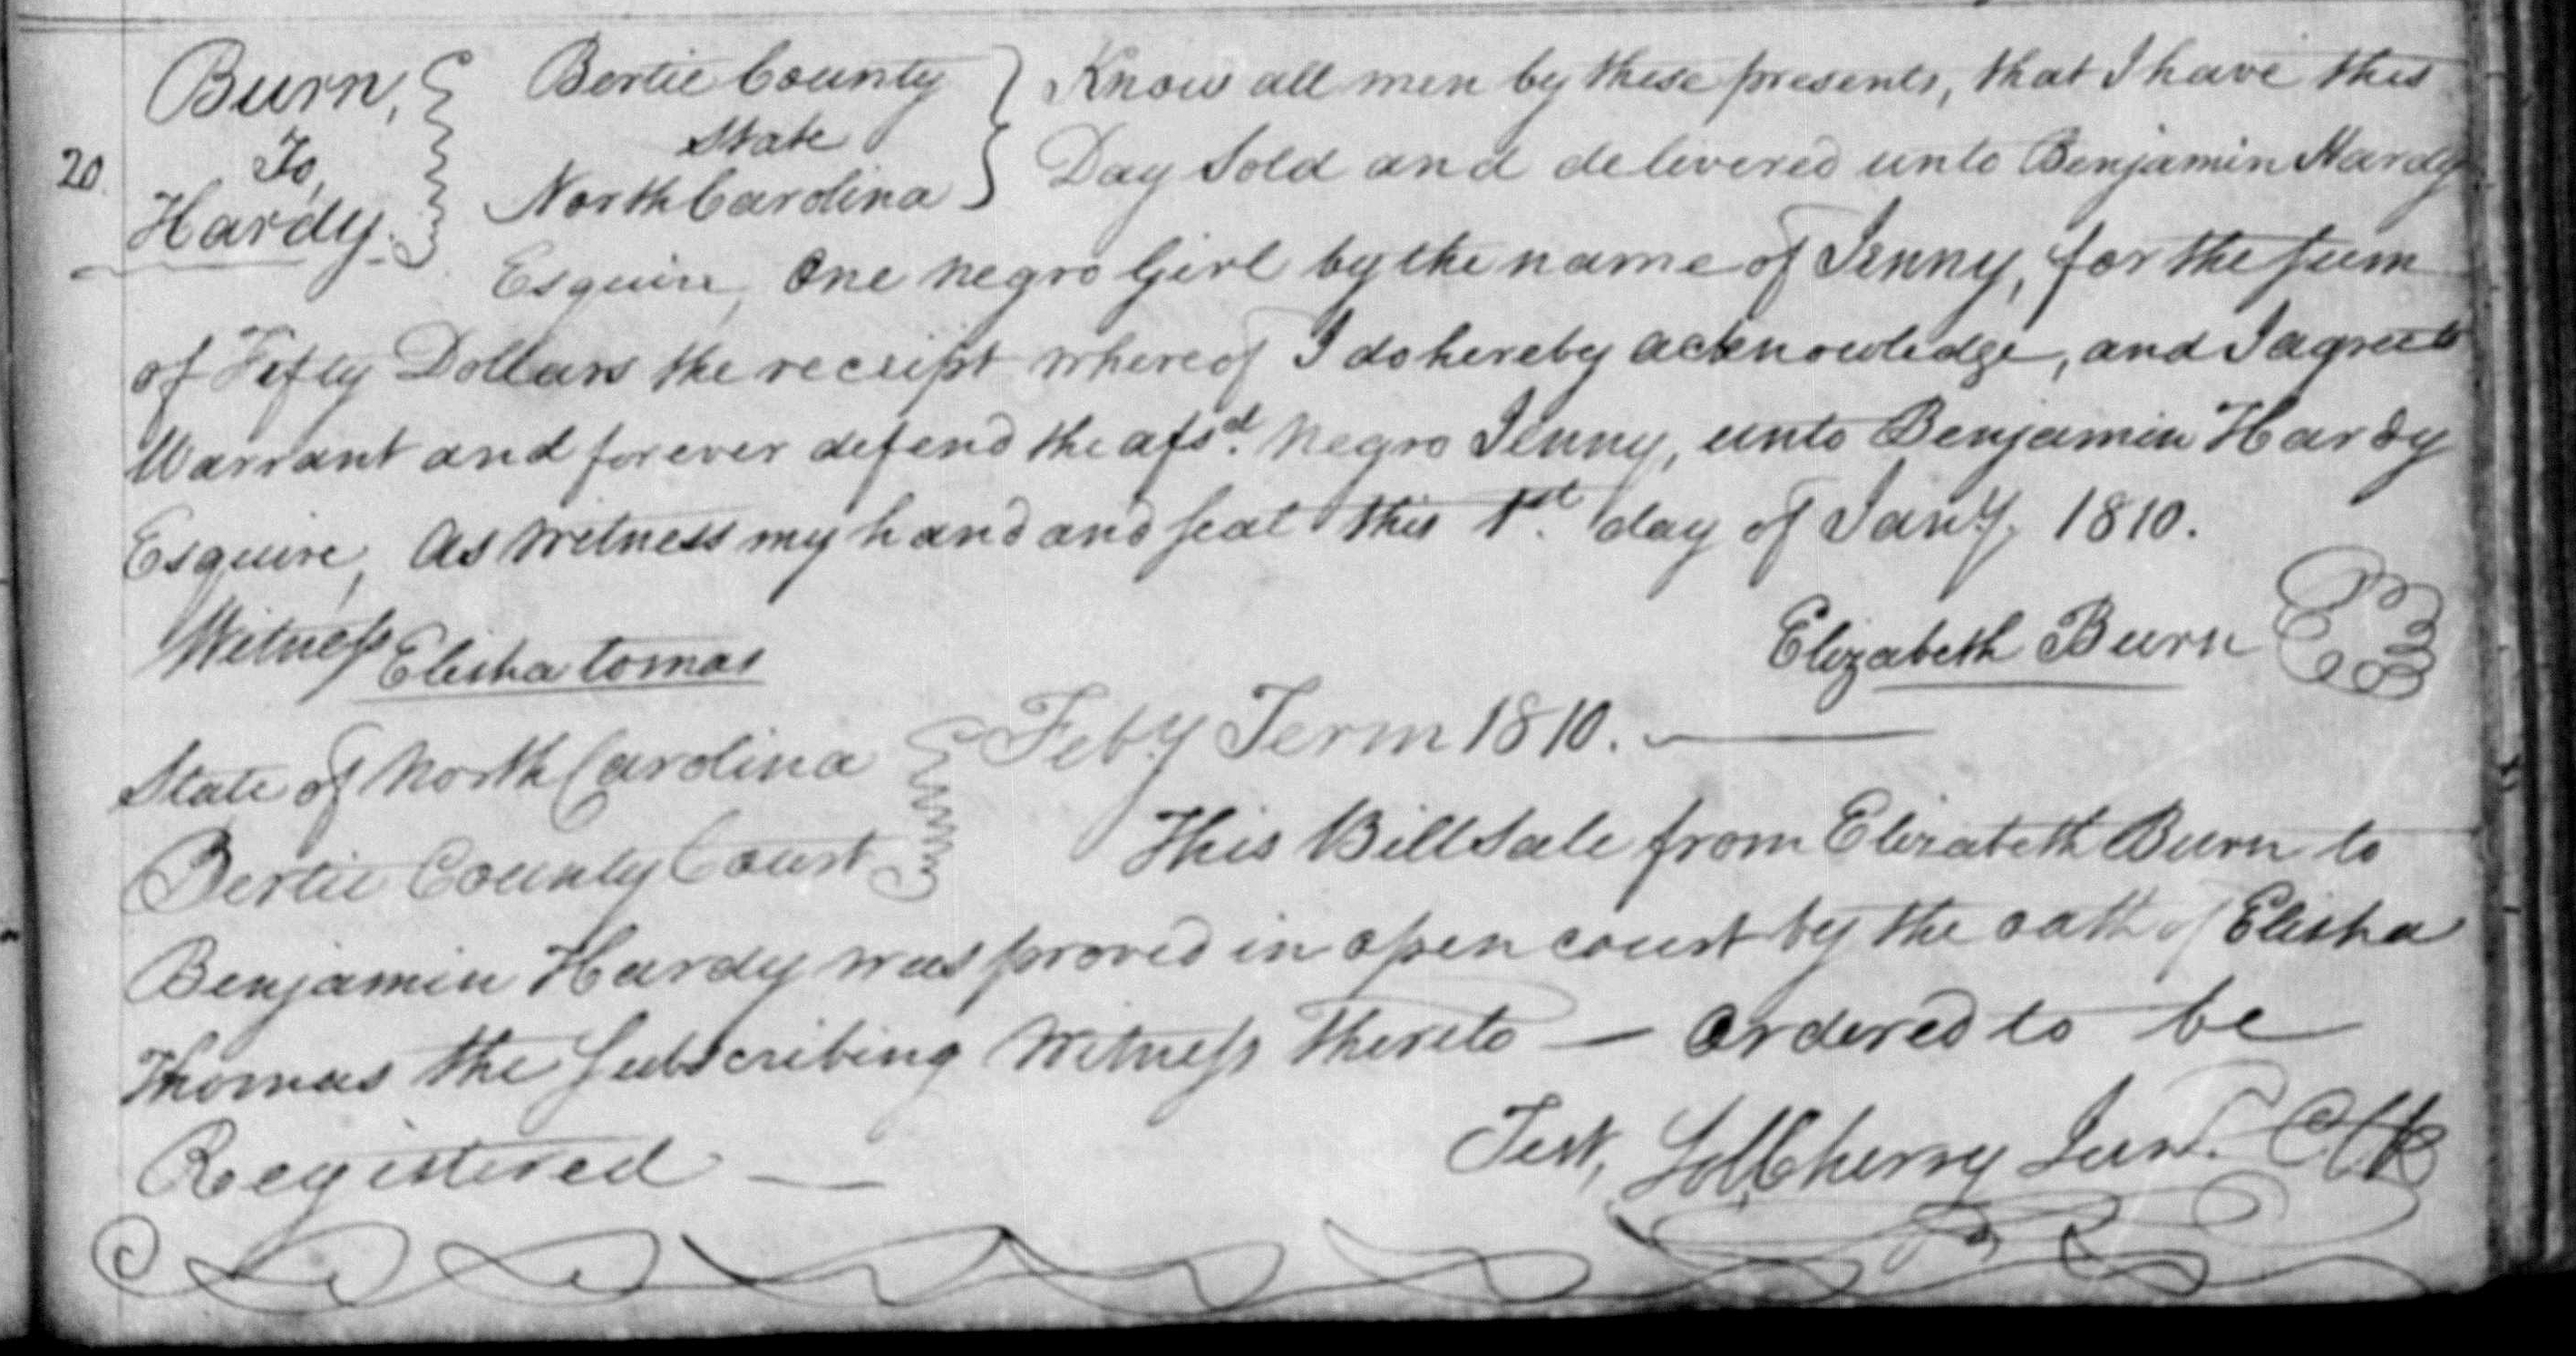 Burn,
To,
Hardy.
20.
Bertie County
State
North Carolina
Know all men by these presents, that I have this
Day Sold and delivered unto Benjamin Hardy
Esquire, One negro Girl by the name of Jenny, for the sum
of Fifty Dollars the receipt whereof I do hereby acknowledge, and I agree to
Warrant and forever defend the afsd. Negro Jenny, unto Benjamin Hardy
Esquire, As Witness my hand and seal this 1st. day of Jany. 1810.
Witness Elisha tomas
Elizabeth Burn
State of North Carolina
Bertie County Court
Feby Term 1810.
This Bill Sale from Elizabeth Burn to
Benjamin Hardy was proved in open court by the oath of Elisha
Thomas the Subscribing Witness Thereto — Ordered to be
Registered —
Test, Sol Cherry Junr. Clk